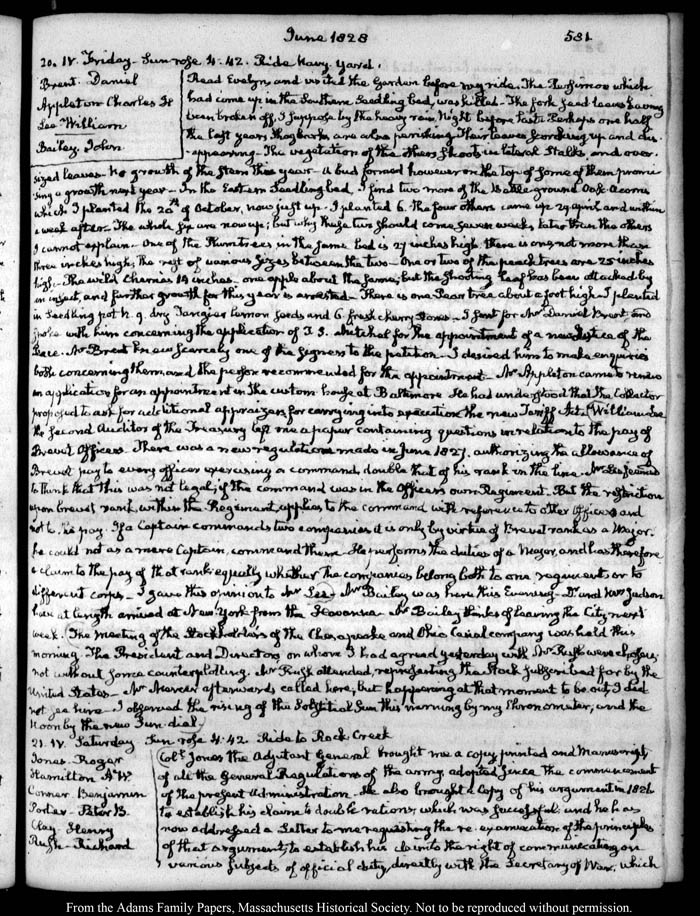 June 1828
581
20. IV. Friday. Sun rose 4:42. Ride Navy Yard.
Brent. Daniel
Appleton Charles H
Lee William
Bailey. John
Read Evelyn, and visited the Garden before my ride. The which
had come up in the Southern Seedling bed, was killed. The fork seed leaves having
been broken off, I suppose by the heavy rain, Night before last. Perhaps one half
the last years Shagbarks are also perishing. Their leaves scorching up and dis-
-appearing. The vegetation of the others shoots in lateral stalks, and over-
sized leaves. No growth of the stem this year. A bud formed however on the top of some of them promi-
sing a growth next year. In the Eastern Seedling bed, I find two more of the Battle ground Oak Acorns
which I planted the 20th of October, now just up. I planted 6. the four others came up 29 April and within
a week after. The whole six are now up; but why these two should come seven weeks later than the others
I cannot explain. One of the Plum trees in the same bed is 27 inches high there is one not more than
three inches high; the rest of various sizes between the two. One or two of the peach trees are 25 inches
high. The wild Cherries 14 inches. one apple about the same; but the shooting leaf has been attacked by
an insect, and further growth for this year is arrested. There is one Pear tree about a foot high. I planted
in Seedling pot N. 9. dry Tangier lemon seeds and 6. fresh cherry stones. I sent for Mr Daniel Brent and
spoke with him concerning the application of I. S. Mitchel for the appointment of a new Justice of the
Peace. Mr Brent knew scarcely one of the signers to the petition. I desired him to make enquiries
both concerning them, and the person recommended for the appointment. Mr Appleton came to renew
an application for an appointment in the custom house at Baltimore. He had understood that the Collector
proposed to ask for additional appraisers for carrying into execution the new Tariff Act. William Lee
the Second Auditor of the Treasury left me a paper containing questions in relation to the pay of
Brevet Officers. There was a new regulation made in June 1827. authorizing the allowance of
Brevet pay to every officer exercising a command, double that of his rank in the line. Mr Lee seemed
to think that this was not legal; if the command was in the Officers own Regiment. But the restriction
upon brevet rank within the Regiment, applies to the command with reference to other Officers and
not to his pay. If a Captain commands two companies it is only by virtue of Brevet rank as a Major.
he could not as a mere Captain, command them. He performs the duties of a Major, and has therefore
a claim to the pay of that rank equally whether the companies belong both to one regiment or to
different corps. I gave this opinion to Mr Lee. Mr Bailey was here this Evening. Dr and Mrs Judson
have at length arrived at New York from the Havanna. Mr Bailey thinks of leaving the City next
week. The meeting of the Stockholders of the Chesapeake and Ohio Canal company was held this
morning. The President and Directors on whom I had agreed yesterday with Mr Rush were chosen;
not without some counterplotting. Mr Rush attended, representing the Stock subscribed for by the
United States. Mr Mercer afterwards called here, but happening at that moment to be out, I did
not see him. I observed the rising of the Solstitial Sun this morning by my Chronometer, and the
Noon by the new Sun-dial.
21. IV. Saturday Sun rose 4:42. Ride to Rock Creek
Jones. Roger
Hamilton
Conner Benjamin
Porter. Peter B.
Clay Henry
Rush. Richard
Coll. Jones the Adjutant General brought me a copy, printed and Manuscript,
of all the General Regulations of the army, adopted since the commencement
of the present Administration. He also brought a Copy of his argument in 1826
to establish his claim to double rations, which was successful, and he has
now addressed a Letter to me requesting the re-examination of the principles
of that argument, to establish his claim to the right of communicating on
various subjects of official duty, directly with the Secretary of War, which
From the Adams Family Papers, Massachusetts Historical Society. Not to be reproduced without permission.